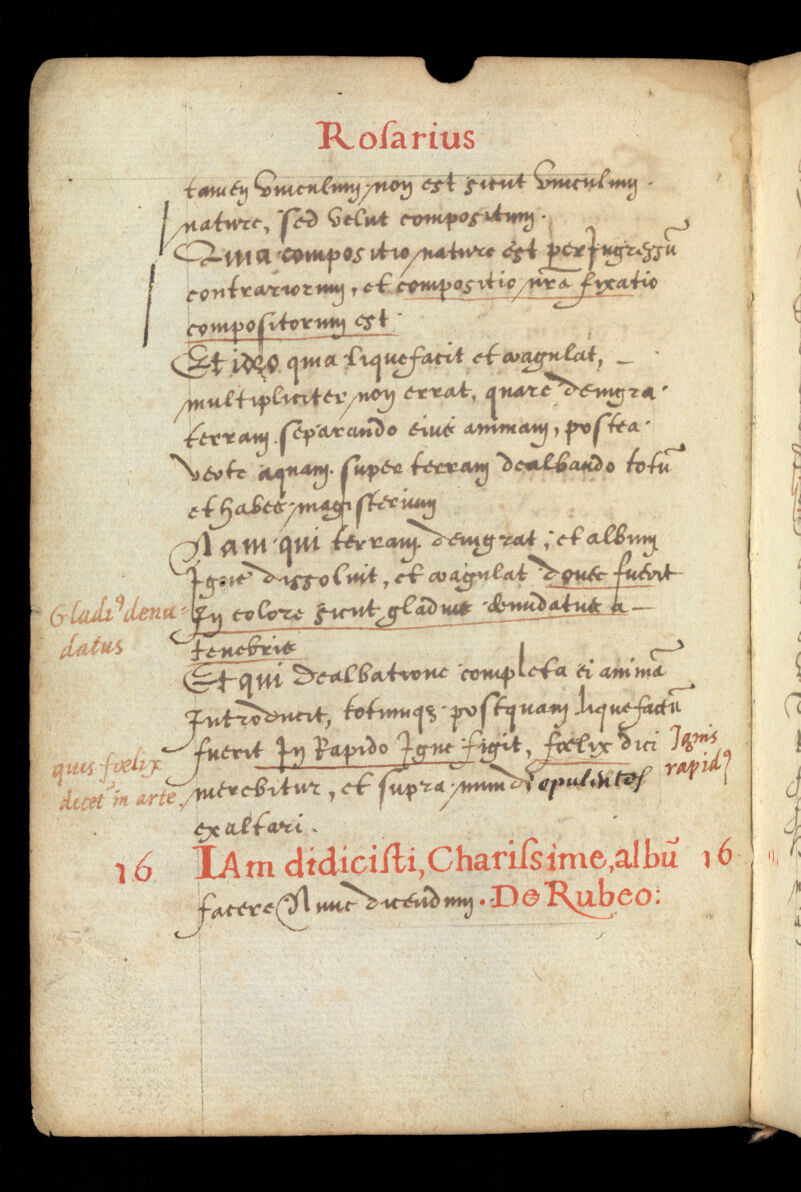 Roſarius
tamen vinculum non est sicut vinculum
nature, sed velut compositum.
Quia compositio nature est per Ingressū
contrariorum, et compositio nr̄a fixatio
compositorum est.
Et ideo quia liquefacit et coagulat,
multipliciter non errat, quare denigra
terram separando eius animam, postea
verte aquam super terram dealbando totū
et habes magisterium
Nam qui terram denigrat, et album
Igne dissoluit, et coagulat donec fuerit
Gladi9 denu=
In colore sicut gladius denudatus a
datus
tenebris
Et qui dealbatione completa ei animā
Introducit, totumq3 postquam liquefactū
fuerit In Rapido Igne figit, fœlix dici
Ignis
rapid9
quis fœlix
merebitur, et supra mundi opulentos
dicet in arte
exaltari.
16 IAm didiciſti, Chariſsime, albū 16
facere Nunc dicendum. De Rubeo: